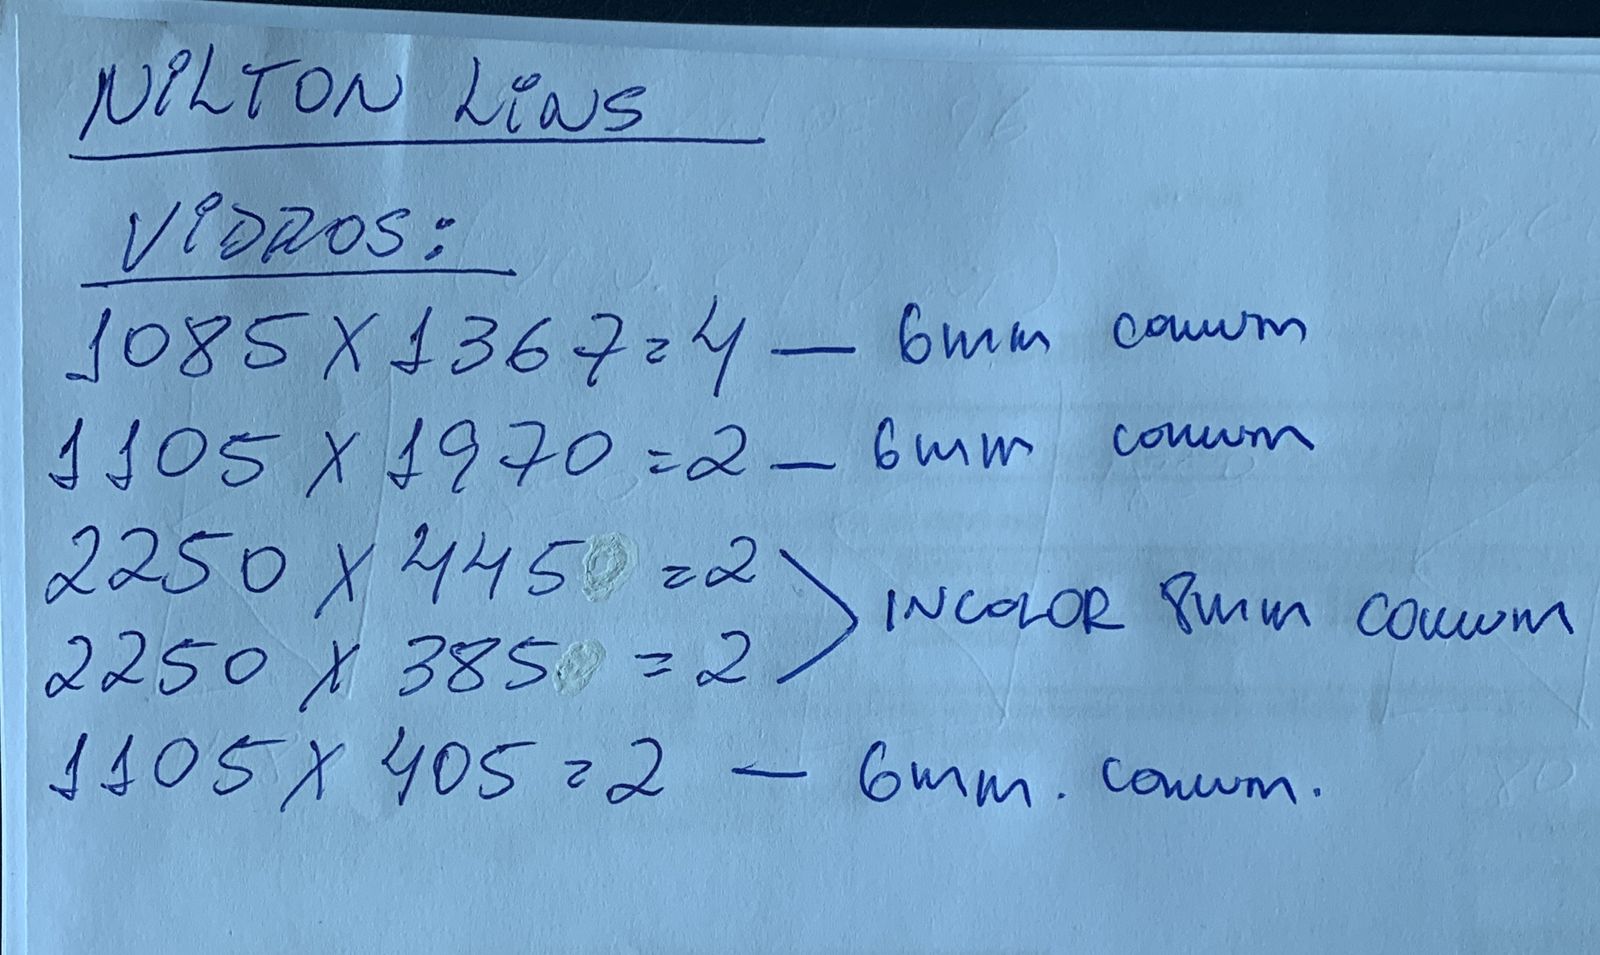 NILTON LINS
VIDROS:
1085 X 1367 = 4 — 6mm comum
1105 X 1970 = 2 — 6mm comum
2250 X 445 = 2
INCOLOR 8mm comum
2250 X 385 = 2
1105 X 405 = 2 — 6mm. comum.